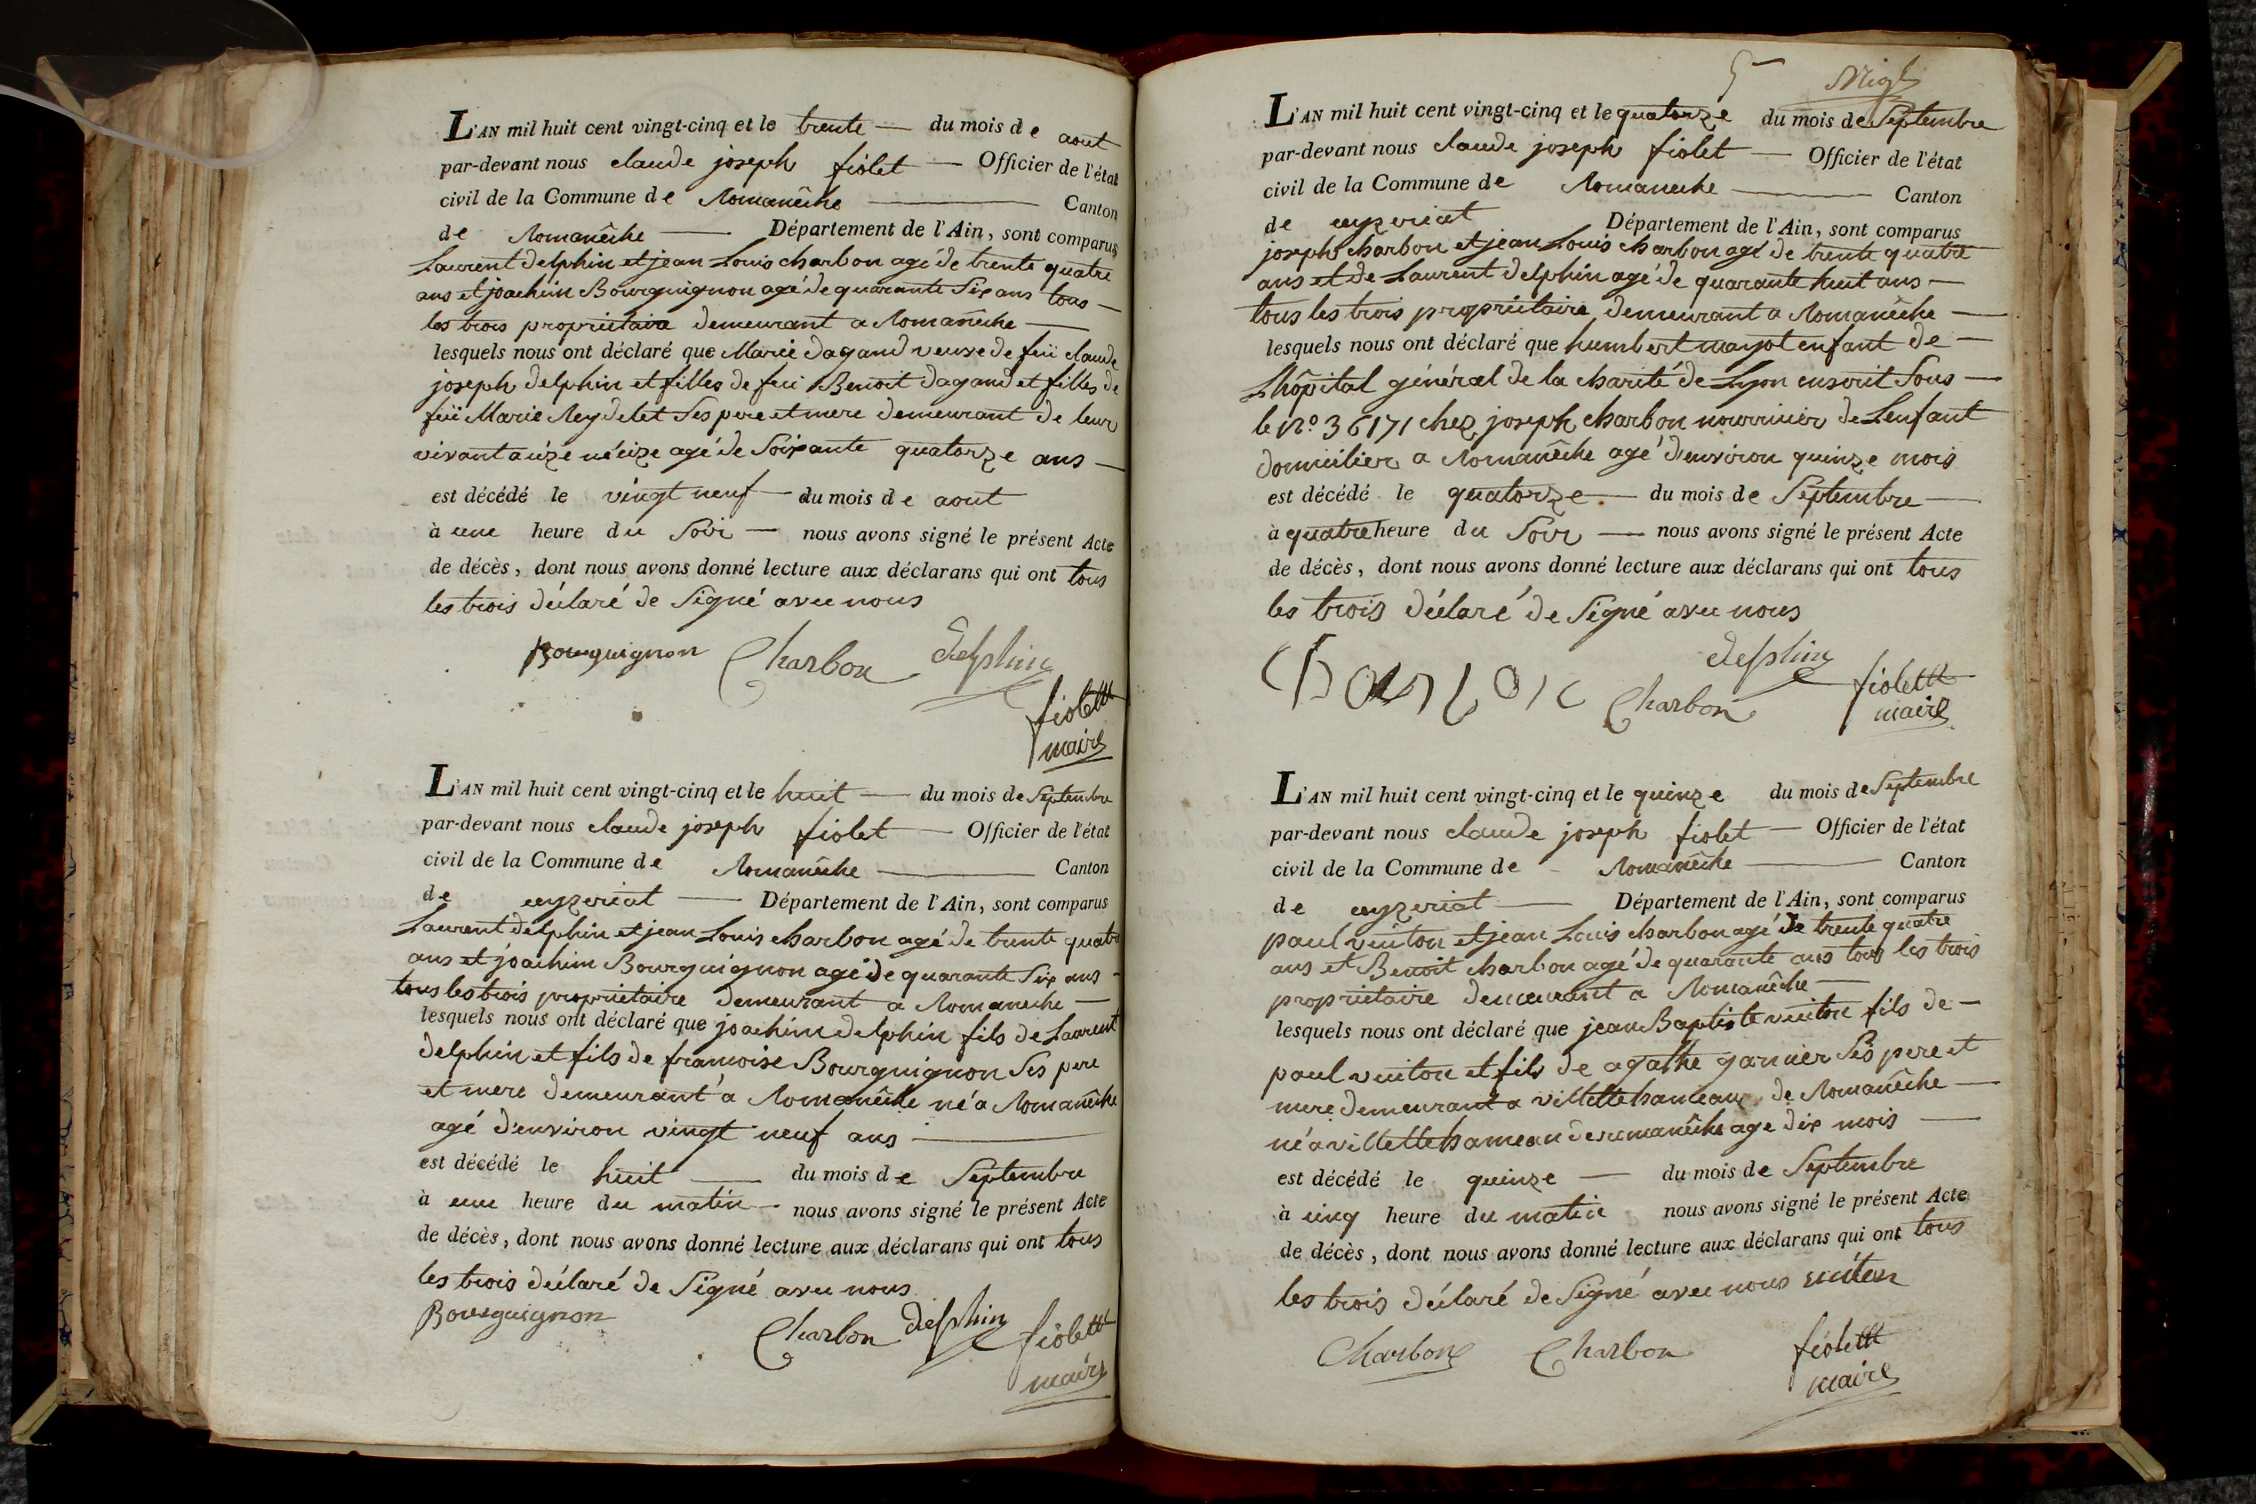 L'AN mil huit cent vingt-cinq et le trente — du mois de aout
par-devant nous claude joseph fiolet — Officier de l'état
civil de la Commune de Romanêche — Canton
de Romanêche — Département de l'Ain, sont comparus
Laurent delphin et jean Louis charbon agé de trente quatre
ans et joachim Bourguignon agé de quarante Six ans tous —
les trois propriétaire demeurant a Romanêche —
lesquels nous ont déclaré que Marie dagand veuve de feü claude
joseph delphin et filles de feü Benoit dagand et filles de
feü Marie Reydelet Ses pere et mere demeurant de leur
vivant a agé de Soixante quatorze ans —
est décédé le vingt neuf — du mois de aout
à une heure du Soir — nous avons signé le présent Acte
de décès, dont nous avons donné lecture aux déclarans qui ont tous
les trois déclaré de Signé avec nous
Bourguignon Charbon delphin
fiolet
maire
L'AN mil huit cent vingt-cinq et le huit — du mois de Septembre
par-devant nous claude joseph fiolet — Officier de l'état
civil de la Commune de Romanêche — Canton
de ceyzeriat — Département de l'Ain, sont comparus
Laurent delphin et jean Louis charbon agé de trente quatre
ans et joachim Bourguignon agé de quarante Six ans —
tous les trois propriétaire demeurant a Romaneche —
lesquels nous ont déclaré que joachim delphin fils de Laurent
delphin et fils de francoise Bourguignon Ses pere
et mere demeurant a Romanêche né a Romanêche
agé d'environ vingt neuf ans —
est décédé le huit — du mois de Septembre
à une heure du matin — nous avons signé le présent Acte
de décès, dont nous avons donné lecture aux déclarans qui ont tous
les trois déclaré de Signé avec nous
Bourguignon Charbon delphin fiolet
maire
5
L'AN mil huit cent vingt-cinq et le quatorze du mois de Septembre
par-devant nous claude joseph fiolet — Officier de l'état
civil de la Commune de Romaneche — Canton
de ceyzeriat Département de l'Ain, sont comparus
joseph charbon et jean Louis charbon agé de trente quatre
ans et de Laurent delphin agé de quarante huit ans —
tous les trois propriétaire demeurant a Romanêche —
lesquels nous ont déclaré que humbert mayot enfant de —
Lhôpital général de la charité de Lyon inscrit Sous —
le No. 36171 chez joseph charbon nourricier de Lenfant
domicilier a Romanêche agé d'environ quinze mois
est décédé le quatorze — du mois de Septembre —
à quatre heure du Soir — nous avons signé le présent Acte
de décès, dont nous avons donné lecture aux déclarans qui ont tous
les trois déclaré de Signé avec nous
delphin
Charbon fiolet
maire
L'AN mil huit cent vingt-cinq et le quinze du mois de Septembre
par-devant nous claude joseph fiolet — Officier de l'état
civil de la Commune de Romanêche — Canton
de ceyzeriat — Département de l'Ain, sont comparus
paul vuiton et jean Louis charbon agé de trente quatre
ans et Benoit charbon agé de quarante ans tous les trois
propriétaire demeurant a Romanêche —
lesquels nous ont déclaré que jean Baptiste vuiton fils de —
paul vuiton et fils de agathe garnier Ses pere et
mere demeurant a villette hameau de Romanêche —
né a villette hameau de romanêche age dix mois —
est décédé le quinze — du mois de Septembre
à cinq heure du matin nous avons signé le présent Acte
de décès, dont nous avons donné lecture aux déclarans qui ont tous
les trois déclaré de Signé avec nous vuiton
Charbon Charbon fiolet
maire